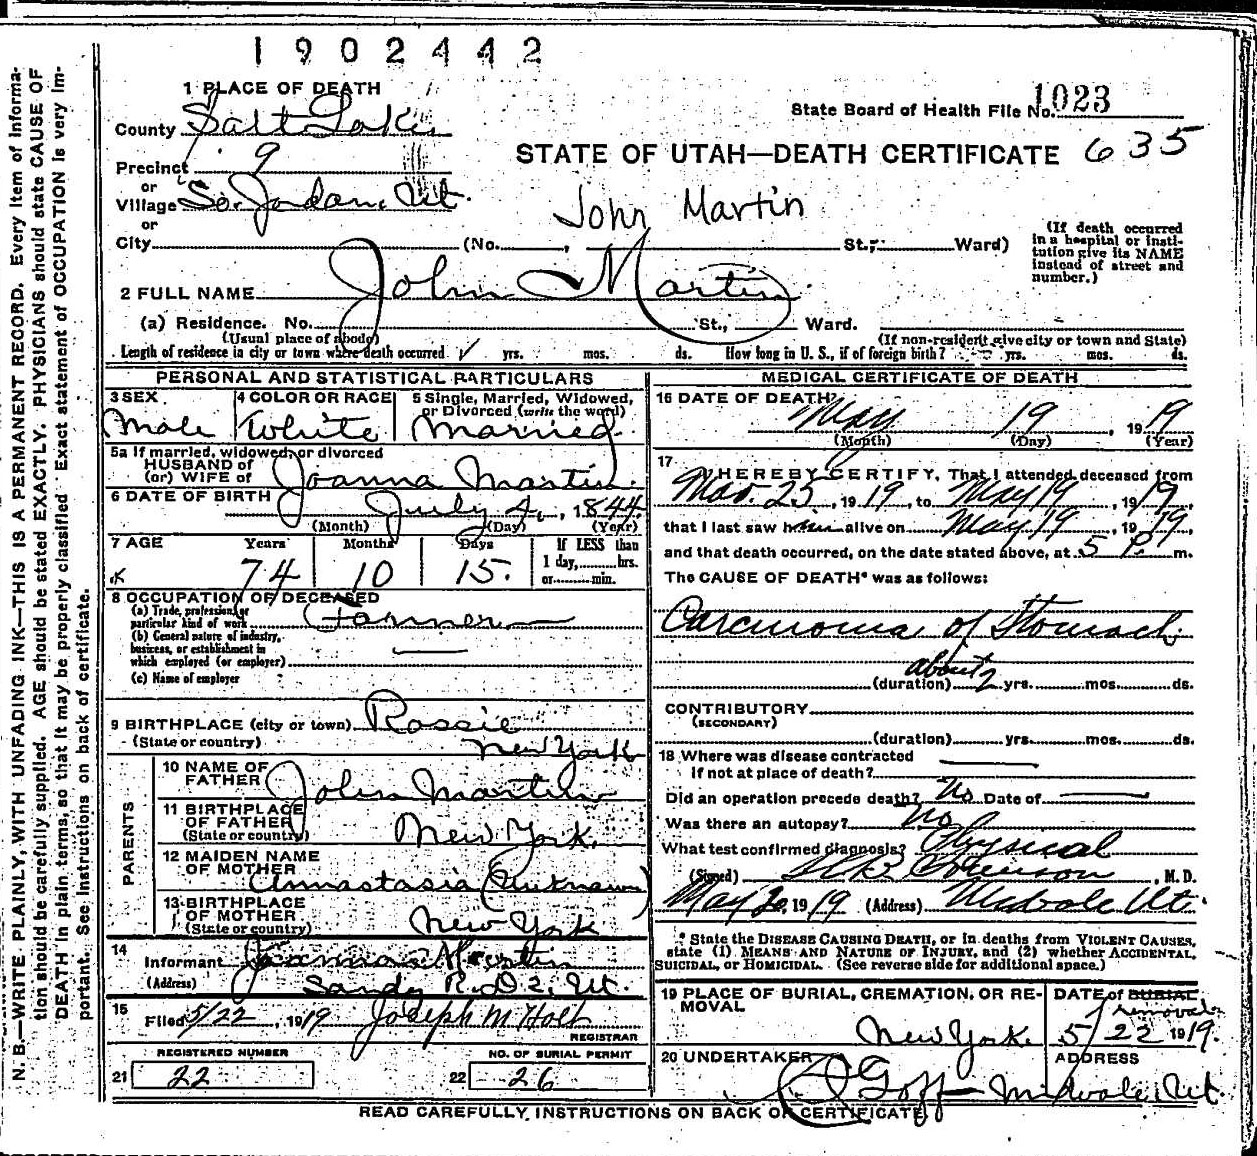 1902442
1 PLACE OF DEATH
State Board of Health File No. 1023
County Salt Lake
STATE OF UTAH—DEATH CERTIFICATE 635
Precinct 9
or
Village So. Jordan, Ut.
John Martin
or
City (No. , St., Ward)
(If death occurred in a hospital or institution give its NAME instead of street and number.)
2 FULL NAME John Martin
(a) Residence. No. St., Ward.
(Usual place of abode) (If non-resident give city or town and State)
Length of residence in city or town where death occurred yrs. mos. ds. How long in U. S., if of foreign birth? yrs. mos. ds.
PERSONAL AND STATISTICAL PARTICULARS
3 SEX Male
4 COLOR OR RACE White
5 Single, Married, Widowed, or Divorced (write the word) Married
5a If married, widowed, or divorced
HUSBAND of
(or) WIFE of Joanna Martin
6 DATE OF BIRTH July 4, 1844
(Month) (Day) (Year)
7 AGE Years Months Days If LESS than
1 day, hrs.
or min.
74 10 15.
8 OCCUPATION OF DECEASED
(a) Trade, profession, or
particular kind of work Farmer
(b) General nature of industry,
business, or establishment in
which employed (or employer)
(c) Name of employer
9 BIRTHPLACE (city or town) Rossie
(State or country) New York
PARENTS
10 NAME OF
FATHER John Martin
11 BIRTHPLACE
OF FATHER
(State or country) New York.
12 MAIDEN NAME
OF MOTHER Annastasia (Unknown)
13 BIRTHPLACE
OF MOTHER
(State or country) New York
14
Informant Martin
(Address) Sandy R.D 2, Ut.
15
Filed 5/22, 1919 Joseph M Holt
REGISTRAR
REGISTERED NUMBER NO. OF BURIAL PERMIT
21 22 22 26
MEDICAL CERTIFICATE OF DEATH
16 DATE OF DEATH
May 19, 1919
(Month) (Day) (Year)
17
I HEREBY CERTIFY, That I attended deceased from
Mar. 25, 1919, to May 19, 1919,
that I last saw him alive on May 19, 1919,
and that death occurred, on the date stated above, at 5 P. m.
The CAUSE OF DEATH* was as follows:
Carcinoma of Stomach
about
(duration) 2 yrs. mos. ds.
CONTRIBUTORY
(SECONDARY)
(duration) yrs. mos. ds.
18 Where was disease contracted
if not at place of death?
Did an operation precede death? No Date of
Was there an autopsy? No
What test confirmed diagnosis? Physical
(Signed) , M. D.
May 20, 1919 (Address) Midvale Ut.
* State the DISEASE CAUSING DEATH, or in deaths from VIOLENT CAUSES,
state (1) MEANS AND NATURE OF INJURY, and (2) whether ACCIDENTAL,
SUICIDAL, or HOMICIDAL. (See reverse side for additional space.)
19 PLACE OF BURIAL, CREMATION, OR REMOVAL
New York.
DATE of BURIAL
removal
5/22 1919.
20 UNDERTAKER ADDRESS
Goff Midvale, Ut.
READ CAREFULLY INSTRUCTIONS ON BACK OF CERTIFICATE
N. B.—WRITE PLAINLY, WITH UNFADING INK—THIS IS A PERMANENT RECORD. Every item of information should be carefully supplied. AGE should be stated EXACTLY. PHYSICIANS should state CAUSE OF DEATH in plain terms, so that it may be properly classified. Exact statement of OCCUPATION is very important. See instructions on back of certificate.